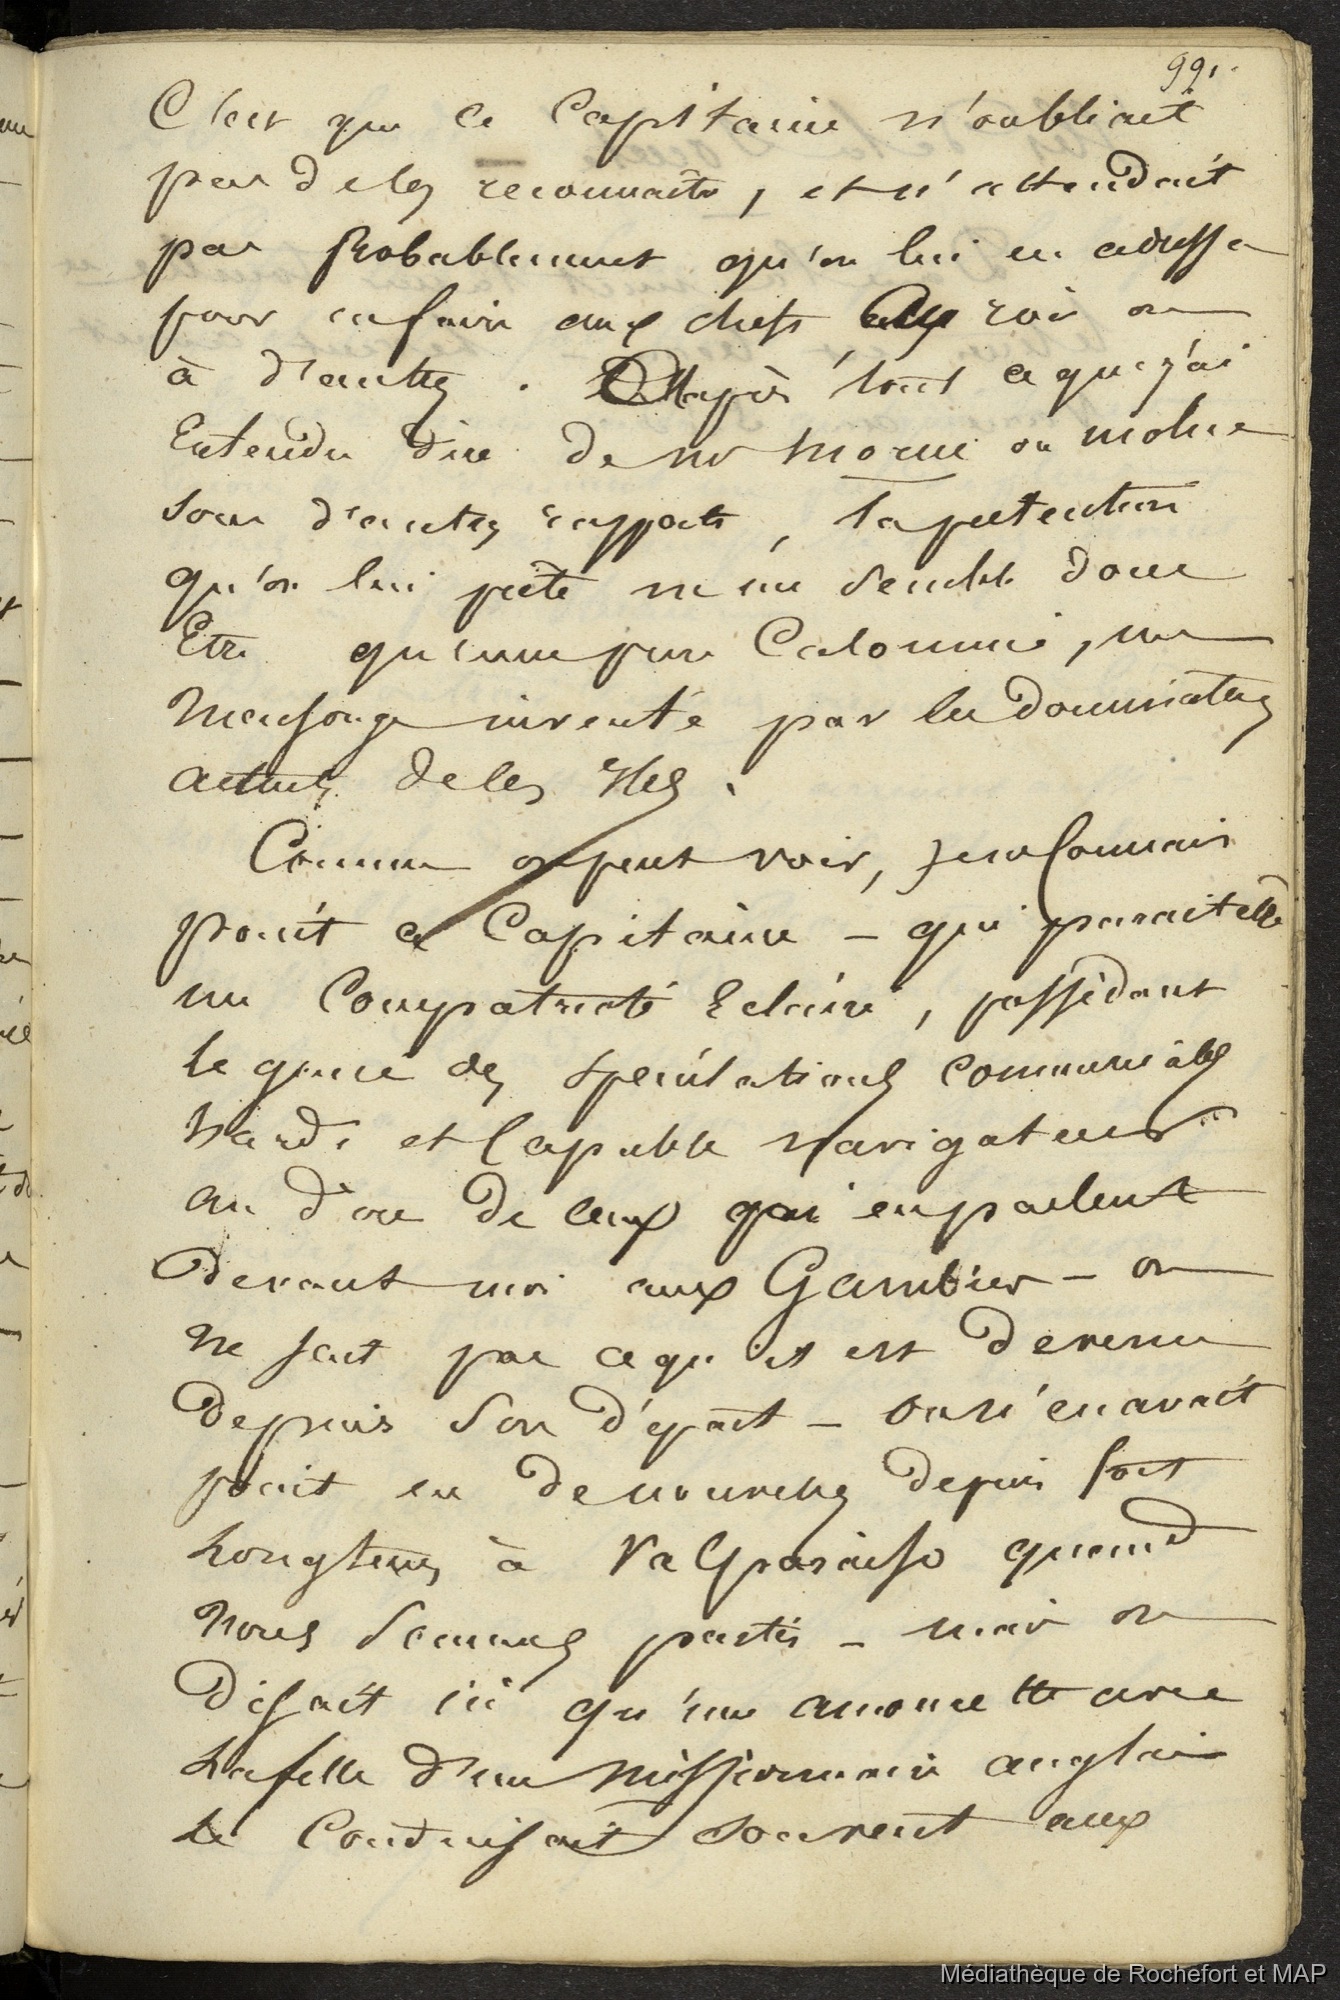 991.
C'est que ce Capitaine n'oubliait
pas de les reconnaitre, et n'attendait
pas probablement qu'on lui en adressa
pour en faire aux chefs aux roir ou
à d'autres. D'après tout ce que j'ai
Entendu dire de Mr Morue ou
sous d'autres rapports, la prétention
qu'on lui prête ne me semble donc
Etre qu'une pure Calomnie, un
Mensonge inventé par les dominateurs
actuels de les Iles.
Comme on peut voir, je ne Connais
point ce Capitaine - qui parait être
un Compatriote Eclairé, possédant
le génie des spéculations commerciales
hardi et Capable navigateur
au dire de ceux qui en parlent
Devant moi aux Gambier - on
ne sait pas ce qu'il est devenu
depuis son départ - on n'en avait
point eu de nouvelles depuis fort
Longtems à Valparaiso quand
Nous sommes partis - mais on
disait ici qu'une amourette avec
la fille d'un Missionnaire anglais
le Conduisait souvent aux
Médiathèque de Rochefort et MAP